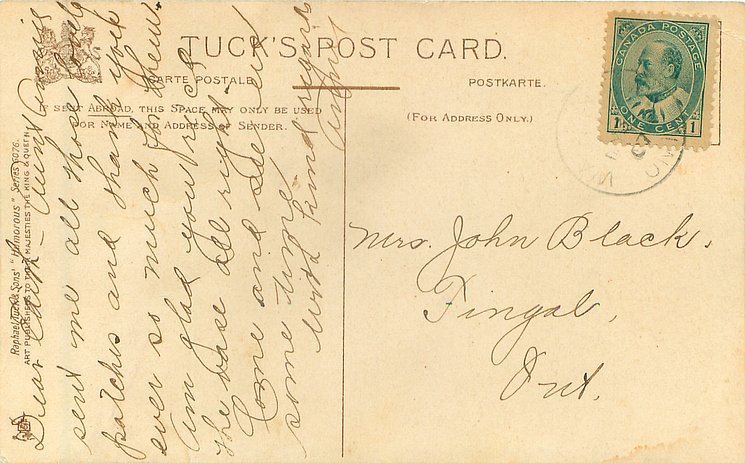 TUCK'S POST CARD.
CARTE POSTALE
POSTKARTE.
IF SENT ABROAD, THIS SPACE MAY ONLY BE USED
FOR NAME AND ADDRESS OF SENDER.
(FOR ADDRESS ONLY.)
Raphael Tuck & Sons' "Humorous" Series 6076.
ART PUBLISHERS TO THEIR MAJESTIES THE KING & QUEEN.
CANADA POSTAGE
ONE CENT
1 1
Dear Aunt Annie
sent me all those lovely
patches and thank you
ever so much for them.
Am glad you rec'd
the vase all right.
Come and see us
some time
With kind regards
Mrs. John Black,
Fingal,
Ont.